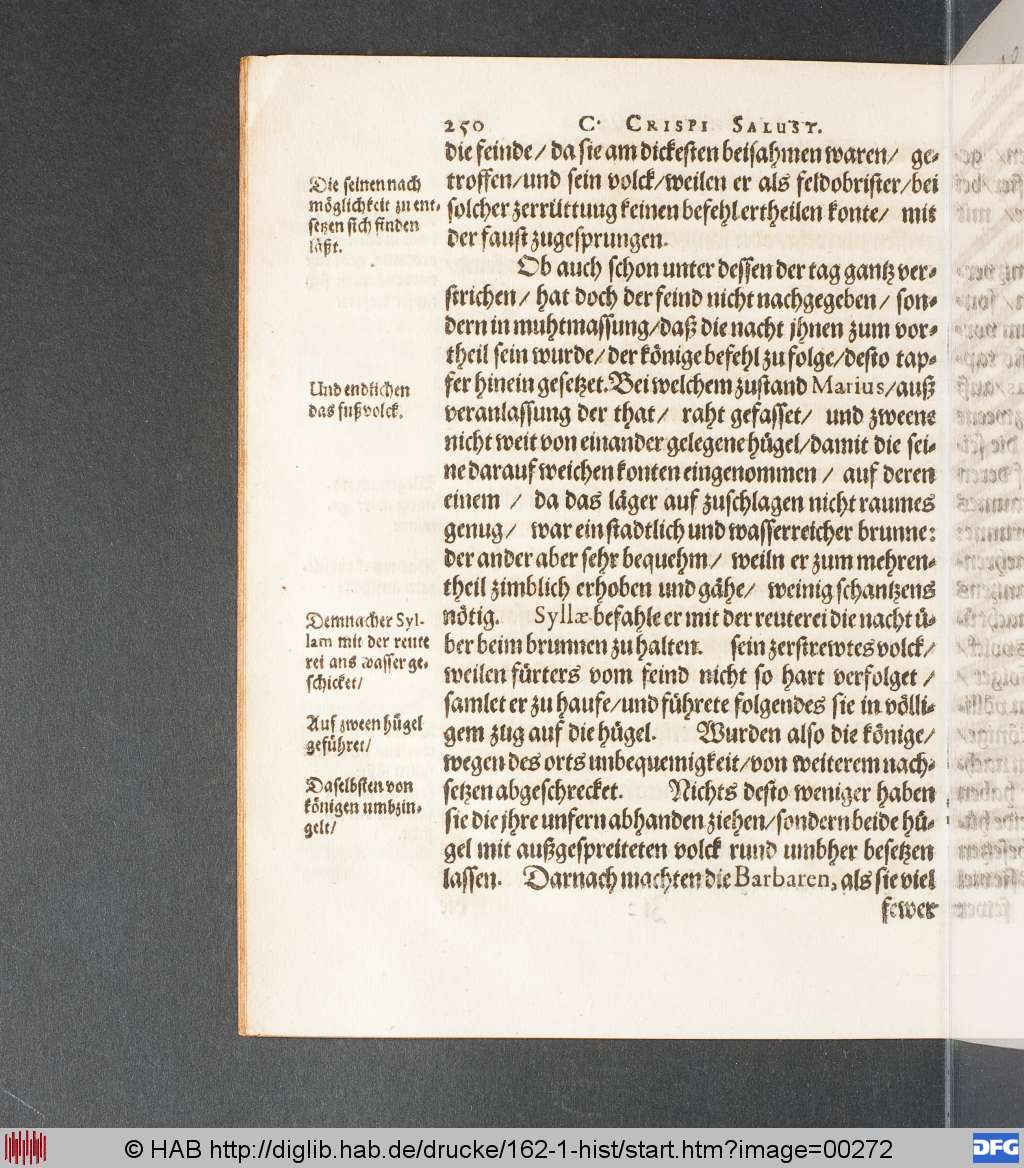 250 C. CRISPI SALUST.
die feinde/ da sie am dickesten beisahmen waren/ ge-
troffen/und sein volck/weilen er als feldobrister/bei
solcher zerrüttung keinen befehl ertheilen konte/ mit
der faust zugesprungen.
Die seinen nach
möglichkeit zu ent-
setzen sich finden
läßt.
Ob auch schon unter dessen der tag gantz ver-
strichen/ hat doch der feind nicht nachgegeben/ son-
dern in muhtmassung/daß die nacht jhnen zum vor-
theil sein wurde/der könige befehl zu folge/desto tap-
fer hinein gesetzet. Bei welchem zustand Marius/auß
veranlassung der that/ raht gefasset/ und zweene
nicht weit von einander gelegene hügel/damit die sei-
ne darauf weichen konten eingenommen/ auf deren
einem / da das läger auf zuschlagen nicht raumes
genug/ war ein stadtlich und wasserreicher brunne:
der ander aber sehr bequehm/ weiln er zum mehren-
theil zimblich erhoben und gähe/ weinig schantzens
nötig. Syllæ befahle er mit der reuterei die nacht ü-
ber beim brunnen zu halten. sein zerstrewtes volck/
weilen fürters vom feind nicht so hart verfolget /
samlet er zu haufe/und führete folgendes sie in völli-
gem zug auf die hügel. Wurden also die könige/
wegen des orts unbequemigkeit/von weiterem nach-
setzen abgeschrecket. Nichts desto weniger haben
sie die jhre unfern abhanden ziehen/sondern beide hü-
gel mit außgespreiteten volck rund umbher besetzen
lassen. Darnach machten die Barbaren, als sie viel
fewer
Und endlichen
das fußvolck.
Demnach er Syl-
lam mit der reute
rei ans wasser ge-
schicket/
Auf zween hügel
geführet/
Daselbsten von
königen umbzin-
gelt/
© HAB http://diglib.hab.de/drucke/162-1-hist/start.htm?image=00272
DFG